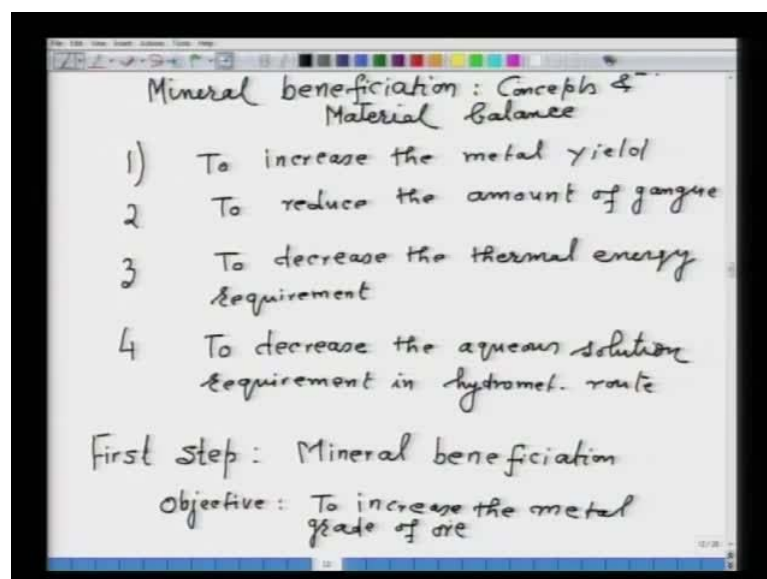 File Edit View Insert Actions Tools Help
Mineral beneficiation : Concepts &
Material balance
1) To increase the metal yield
2 To reduce the amount of gangue
3 To decrease the thermal energy
requirement
4 To decrease the aqueous solution
requirement in hydromet. route
First step : Mineral beneficiation
Objective : To increase the metal
grade of ore